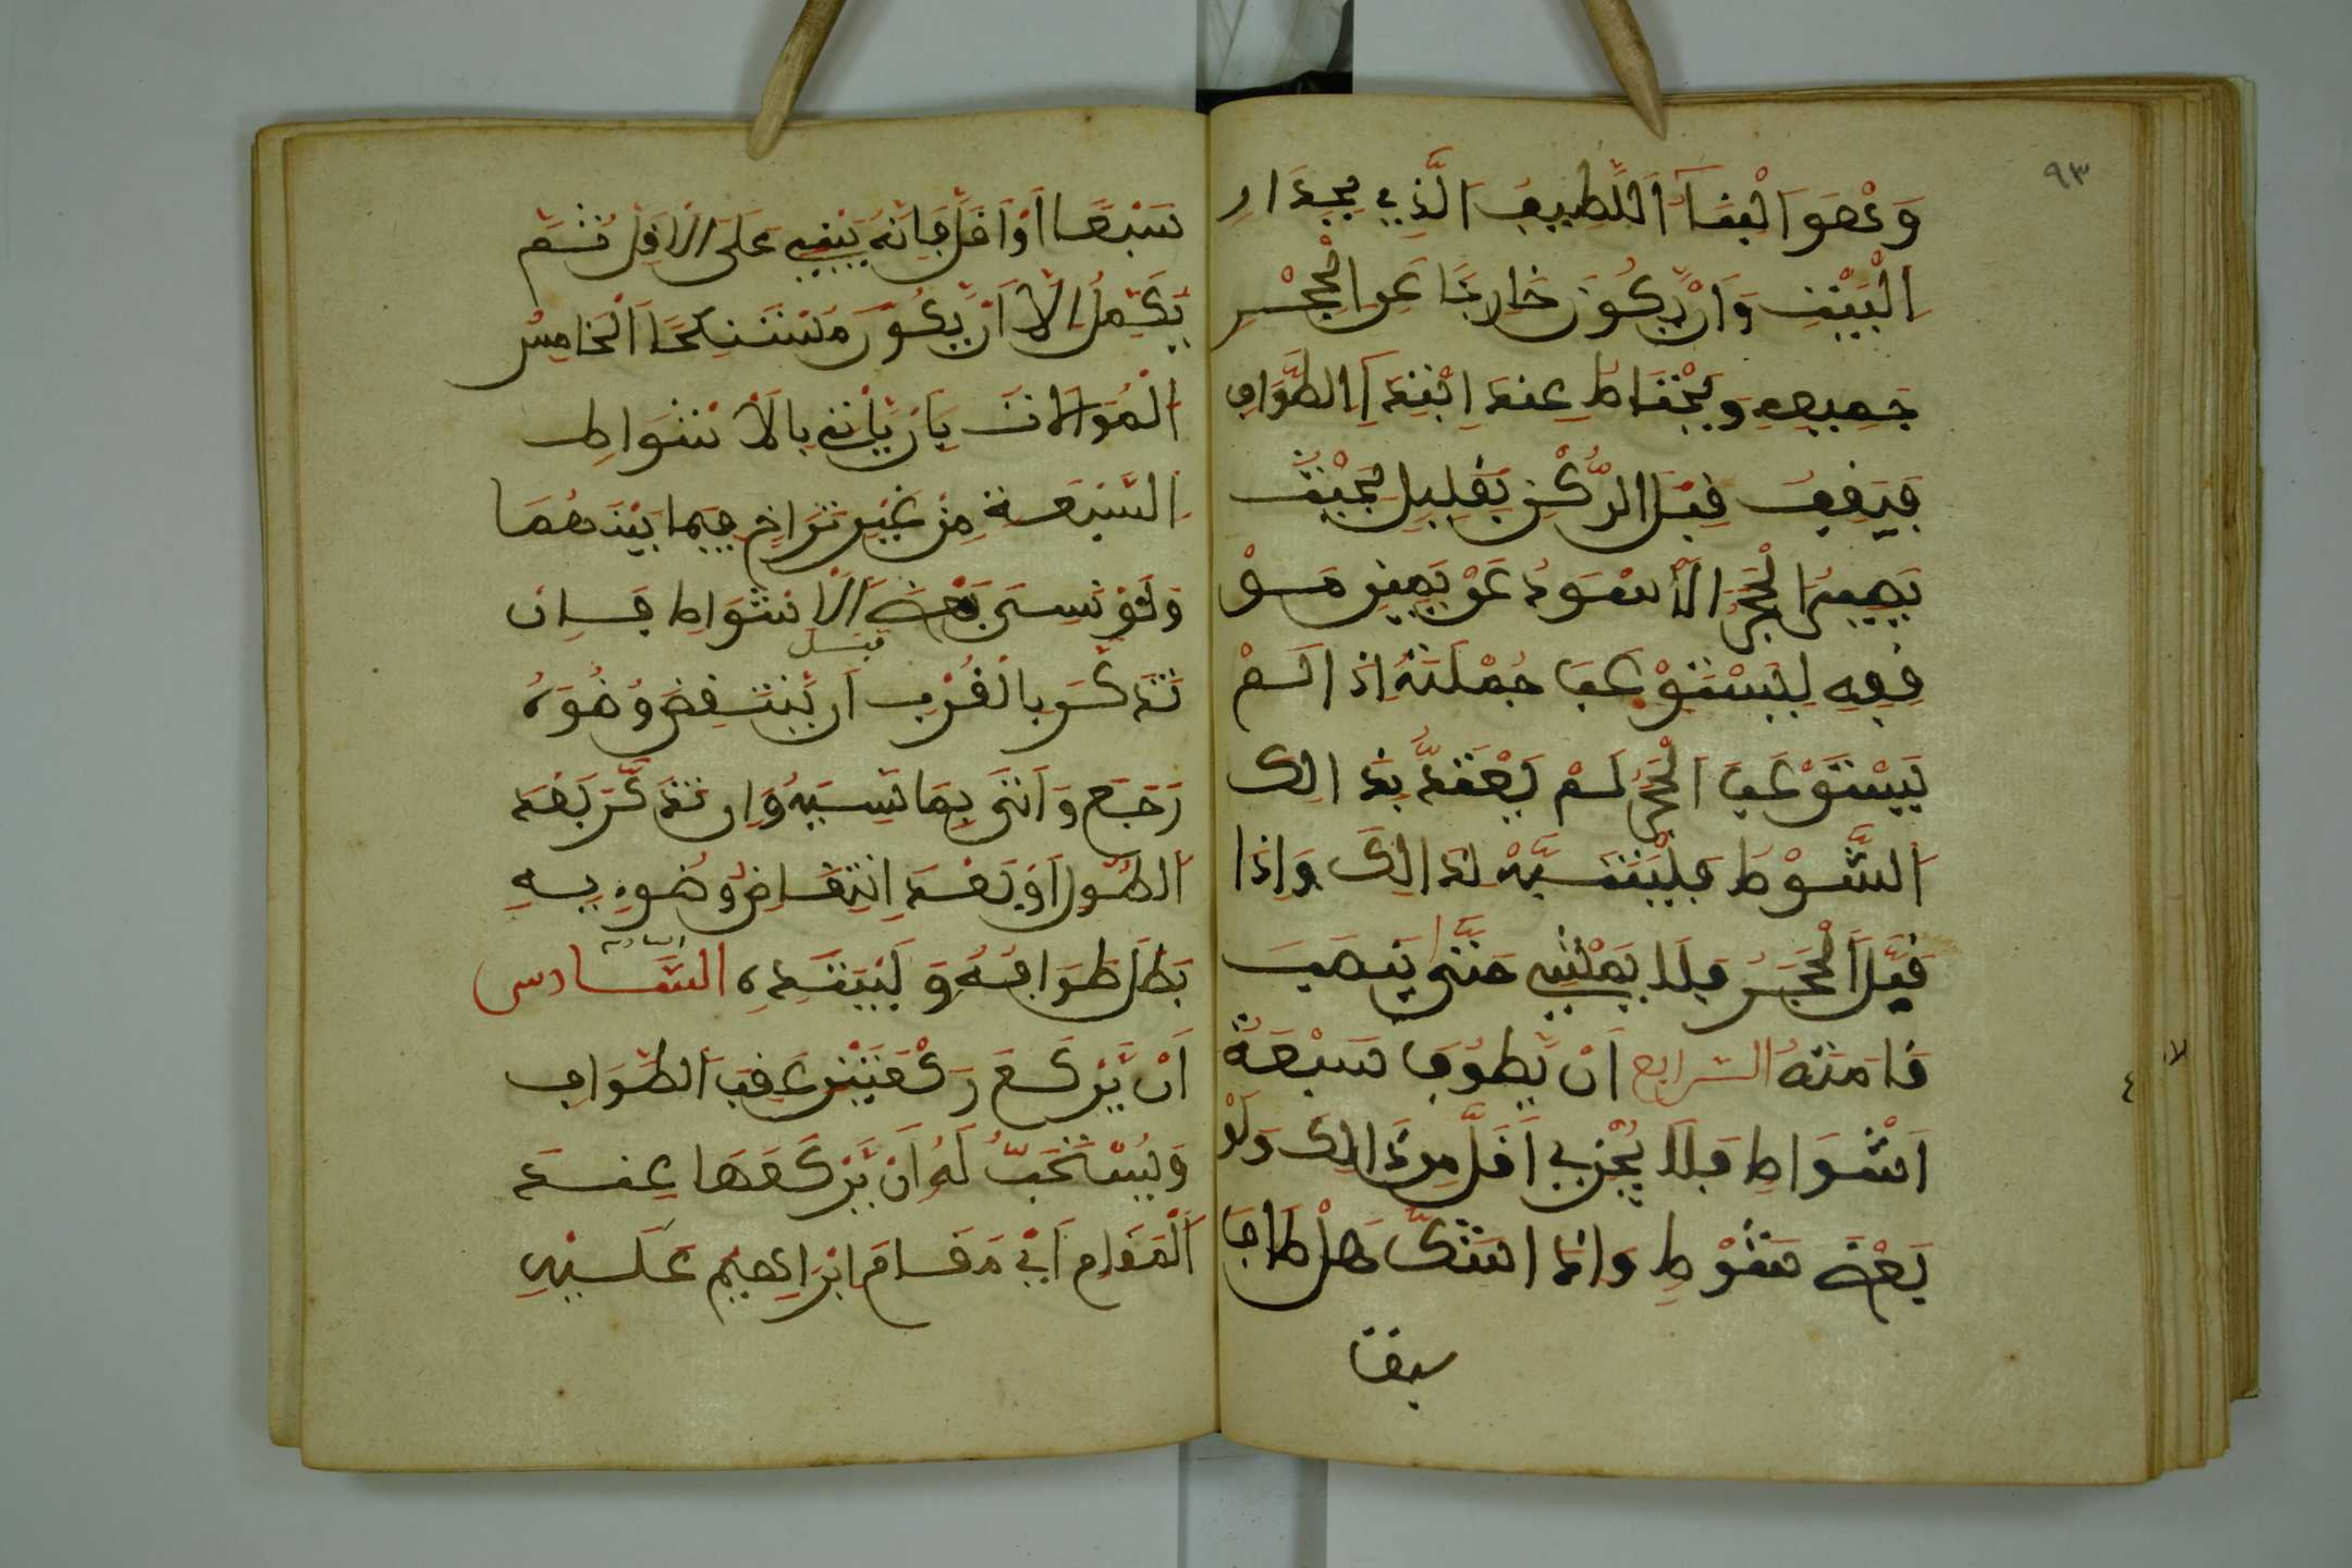 ٩٣
وَهُوَ الْبِنَآءُ اللَّطِيفُ الَّذِي بِجِدَارِ
الْبَيْتِ وَأَنْ يَّكُونَ خَارِجًا عَنِ الْحِجْرِ
جَمِيعِهِ وَيَحْتَاطُ عِنْدَ ابْتِدَآءِ الطَّوَافِ
فَيَقِفُ قَبْلَ الرُّكْنِ بِقَلِيلٍ بِحَيْثُ
يَصِيرُ الْحَجَرُ الْأَسْوَدُ عَنْ يَمِينِ مَوْ
قِفِهِ لِيَسْتَوْعِبَ جُمْلَتَهُ إِذَا لَمْ
يَسْتَوْعِبِ الْحَجَرَ لَمْ يَعْتَدَّ بِذَالِكَ
الشَّوْطِ فَلْيَتَنَبَّهْ لِذَالِكَ وَإِذَا
قَبَّلَ الْحَجَرَ فَلَا يَمْشِي حَتَّى يَنْصِبَ
قَامَتَهُ الرابع أَنْ يَّطُوفَ سَبْعَةَ
أَشْوَاطٍ فَلَا يُجْزِي أَقَلَّ مِنْ ذَالِكَ وَلَوْ
بَعْضَ شَوْطٍ وَإِذَا شَكَّ هَلْ طَافَ
سبعا
سَبْعًا أَوْ أَقَلَّ فَإِنَّهُ يَبْنِي عَلَى الْأَقَلِّ ثُمَّ
يُكَمِّلُ إِلَّا أَنْ يَّكُونَ مُسْتَنْكَحًا الْخَامِسُ
الْمُوَالَاتُ بِأَنْ يَّأْتِيَ بِالْأَشْوَاطِ
السَّبْعَةِ مِنْ غَيْرِ تَرَاخٍ فِيمَا بَيْنَهُمَا
وَلَوْ نَسِىَ بَعْضَ الْأَشْوَاطِ فَإِن
تَذَكَّرَ بِالْقُرْبِ قبل أَنْ يَّنْتَقِضَ وُضُوءُهُ
رَجَعَ وَأَتَى بِمَا نَسِيَهُ وَإِن تَذَكَّرَ بَعْدَ
الطُّولِ أَوْ بَعْدَ انْتِقَاضِ وُضُوءِهِ
بَطَلَ طَوَافُهُ وَلْيَبْتَدِهِ السَّادس
أَنْ يَّرْكَعَ رَكْعَتَيْنِ عَقِبَ الطَّوَافِ
وَيُسْتَحَبُّ لَهُ أَنْ يَّرْكَعَهَا عِنْدَ
الْمَقَامِ أَيْ مَقَامَ إِبْرَاهِيمَ عَلَيْهِ